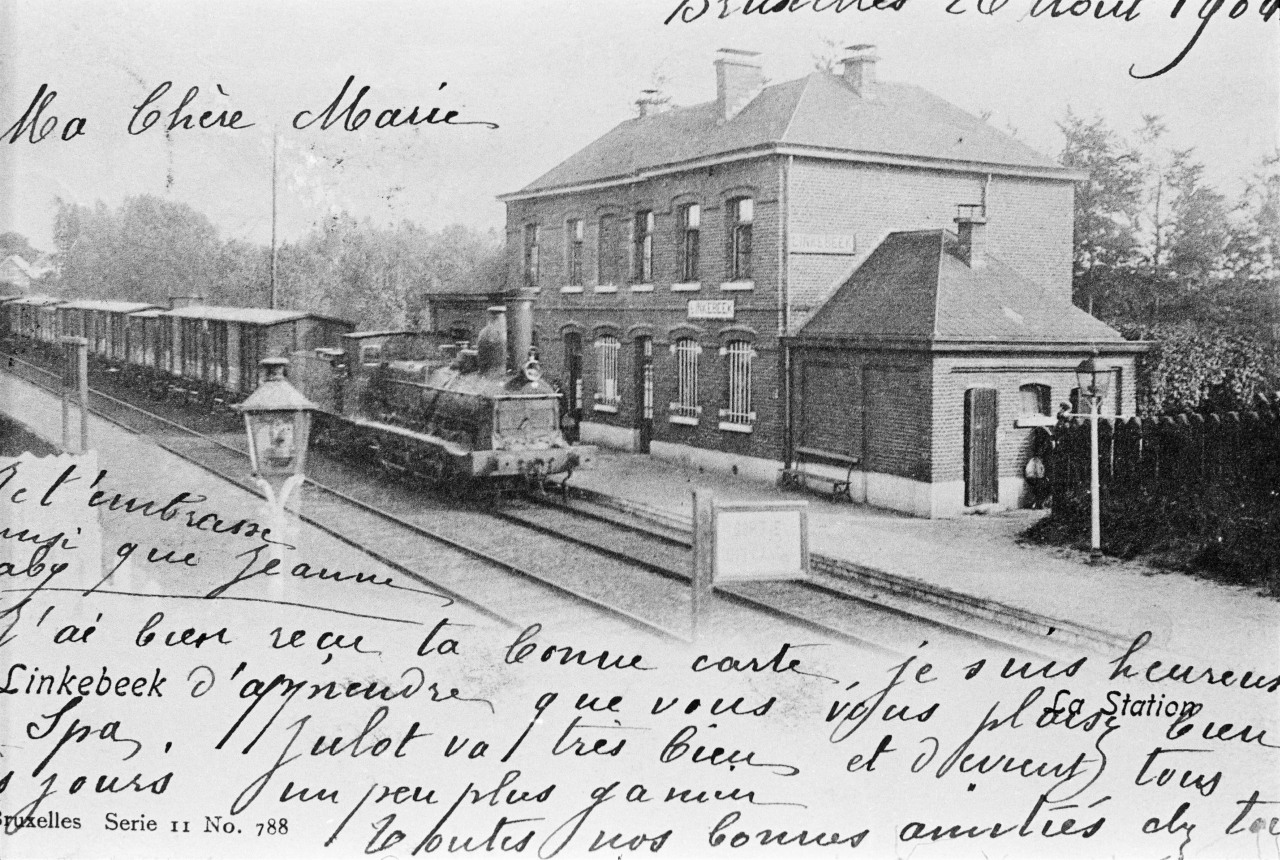 Bruxelles 26 Août 190
Ma Chère Marie
LINKEBEEK
LINKEBEEK
et t'embrasse
ainsi que Jeanne
J'ai bien reçu ta bonne carte, je suis heureuse
Linkebeek
d'apprendre que vous vous plaisez bien
La Station
à Spa. Julot va très bien et devient tous
les jours un peu plus gamin
Bruxelles Serie 11 No. 788
Toutes nos bonnes amitiés chez toi